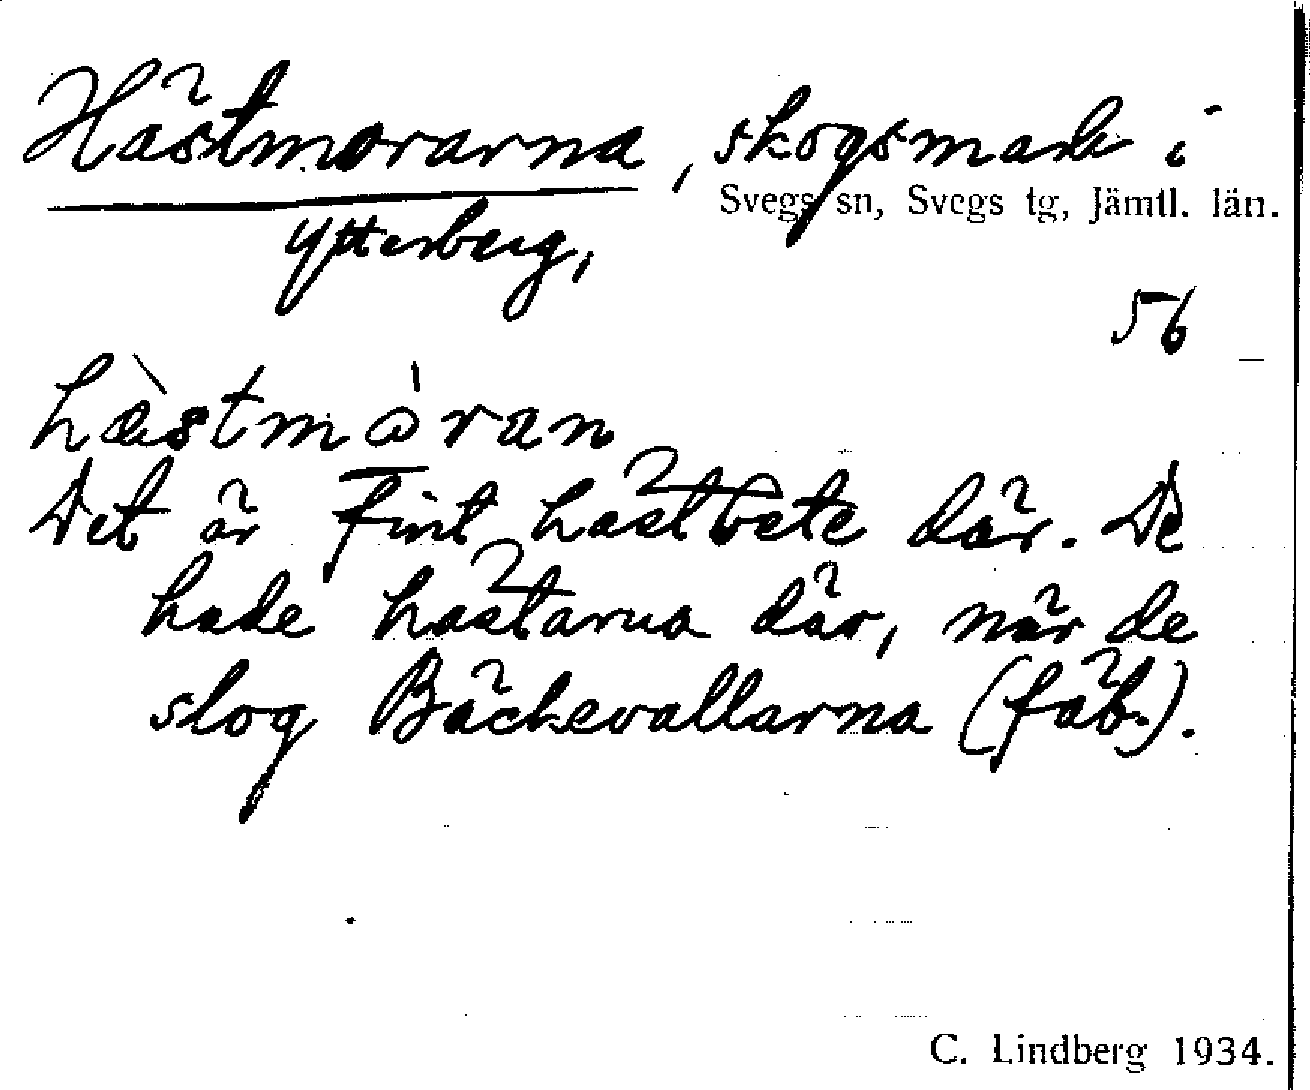 Hästmorarna, skogsmark i
Svegs sn, Svegs tg, Jämtl. län.
Ytterberg,
56
hæ̀stmɷ̀ran
Det är fint hästbete där. De
hade hästarna där, när de
slog Bäckevallarna (fäb.).
C. Lindberg 1934.